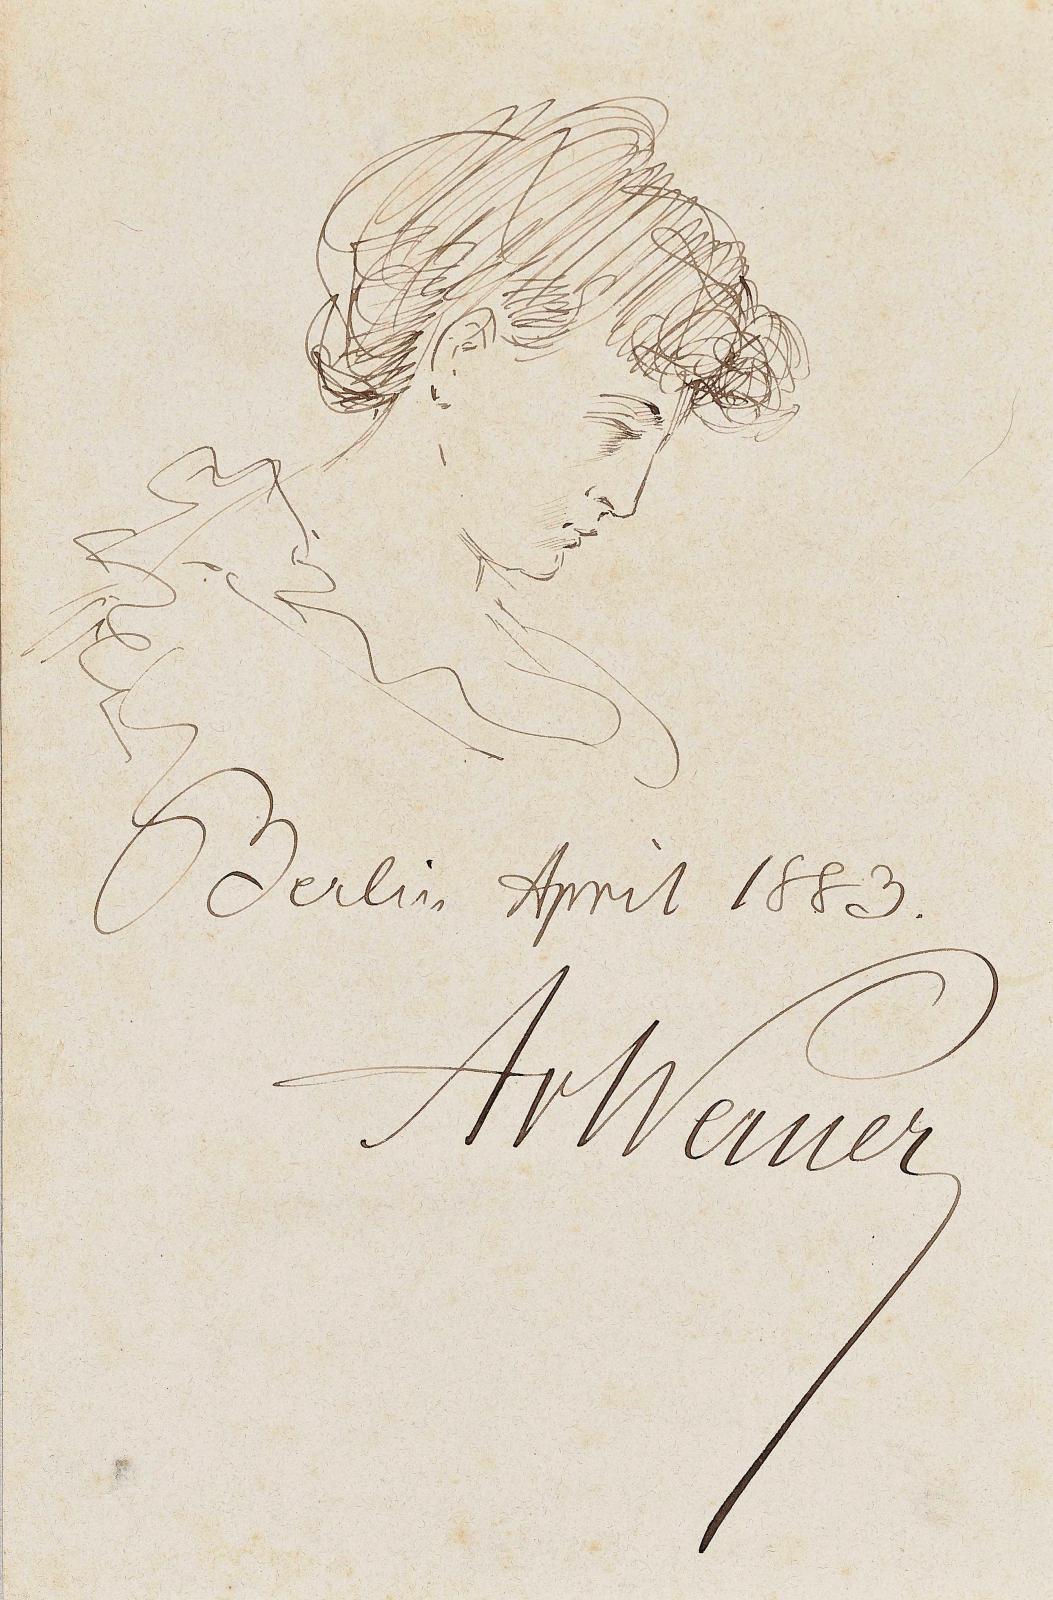 Berlin April 1883.
AvWerner